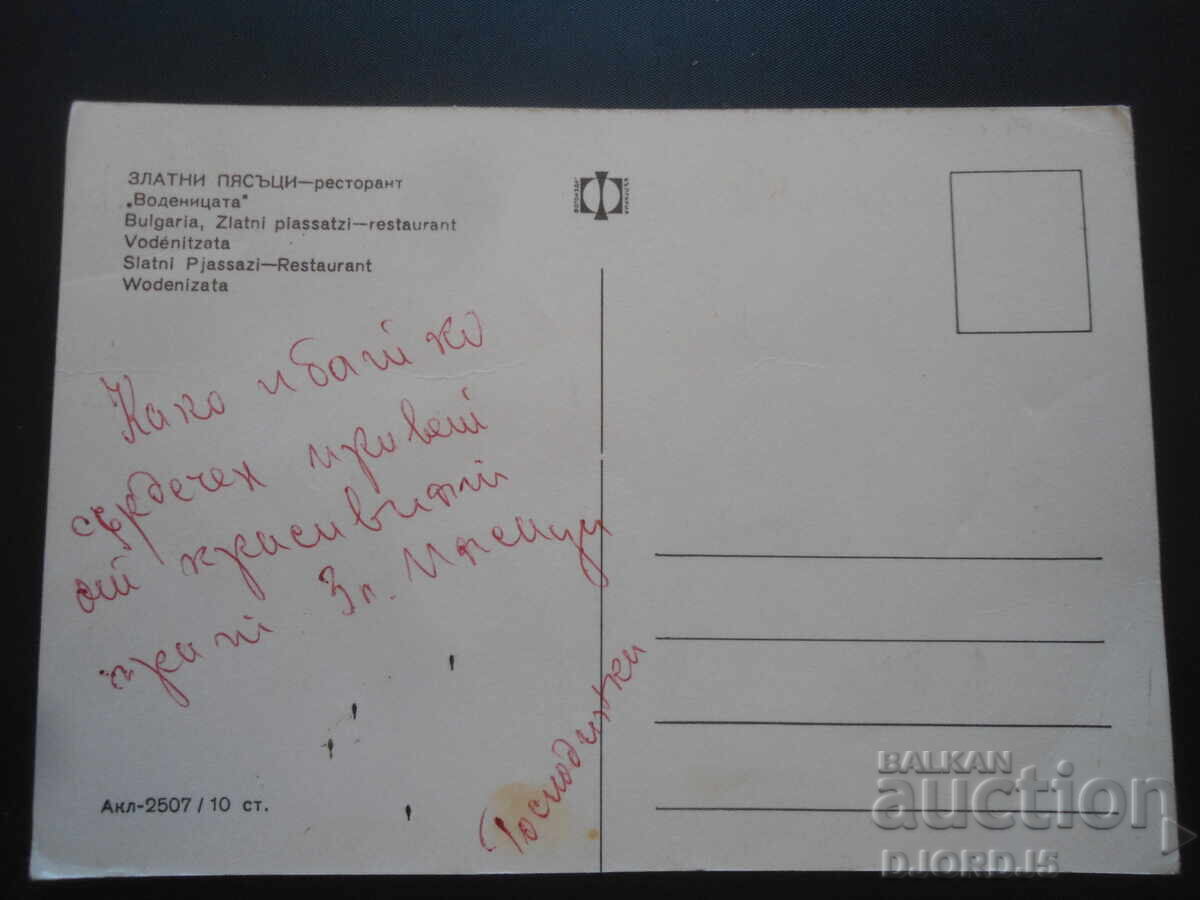 ЗЛАТНИ ПЯСЪЦИ—ресторант
„Воденицата"
Bulgaria, Zlatni piassatzi—restaurant
Vodénitzata
Slatni Pjassazi—Restaurant
Wodenizata
Како и батко
сърдечен привет
от красивития
Зл.
Господинка
Акл-2507 / 10 ст.
BALKAN
auction
DJORD.15